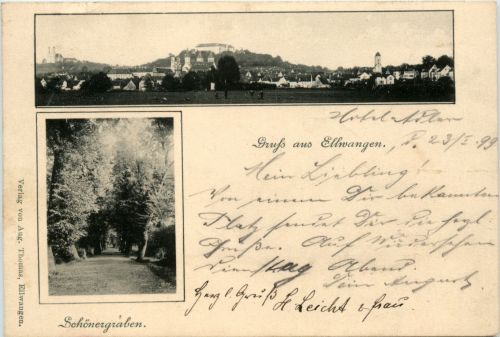 Hotel Adler
Gruß aus Ellwangen.
d. 23/I. 99
Mein Liebling!
Von einem Dir bekannten
Platz sendet Dir die herzl.
Grüße. Auf Wiedersehen
Dienstag Abend.
Dein August
Herzl. Gruß H Leicht & frau.
Schönergraben.
Verlag von Aug. Thomas, Ellwangen.